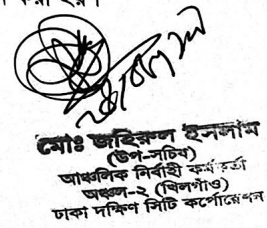 করা হয়।
মোঃ জহিরুল ইসলাম
(উপ-সচিব)
আঞ্চলিক নির্বাহী কর্মকর্তা
অঞ্চল-২ (খিলগাঁও)
ঢাকা দক্ষিণ সিটি কর্পোরেশন